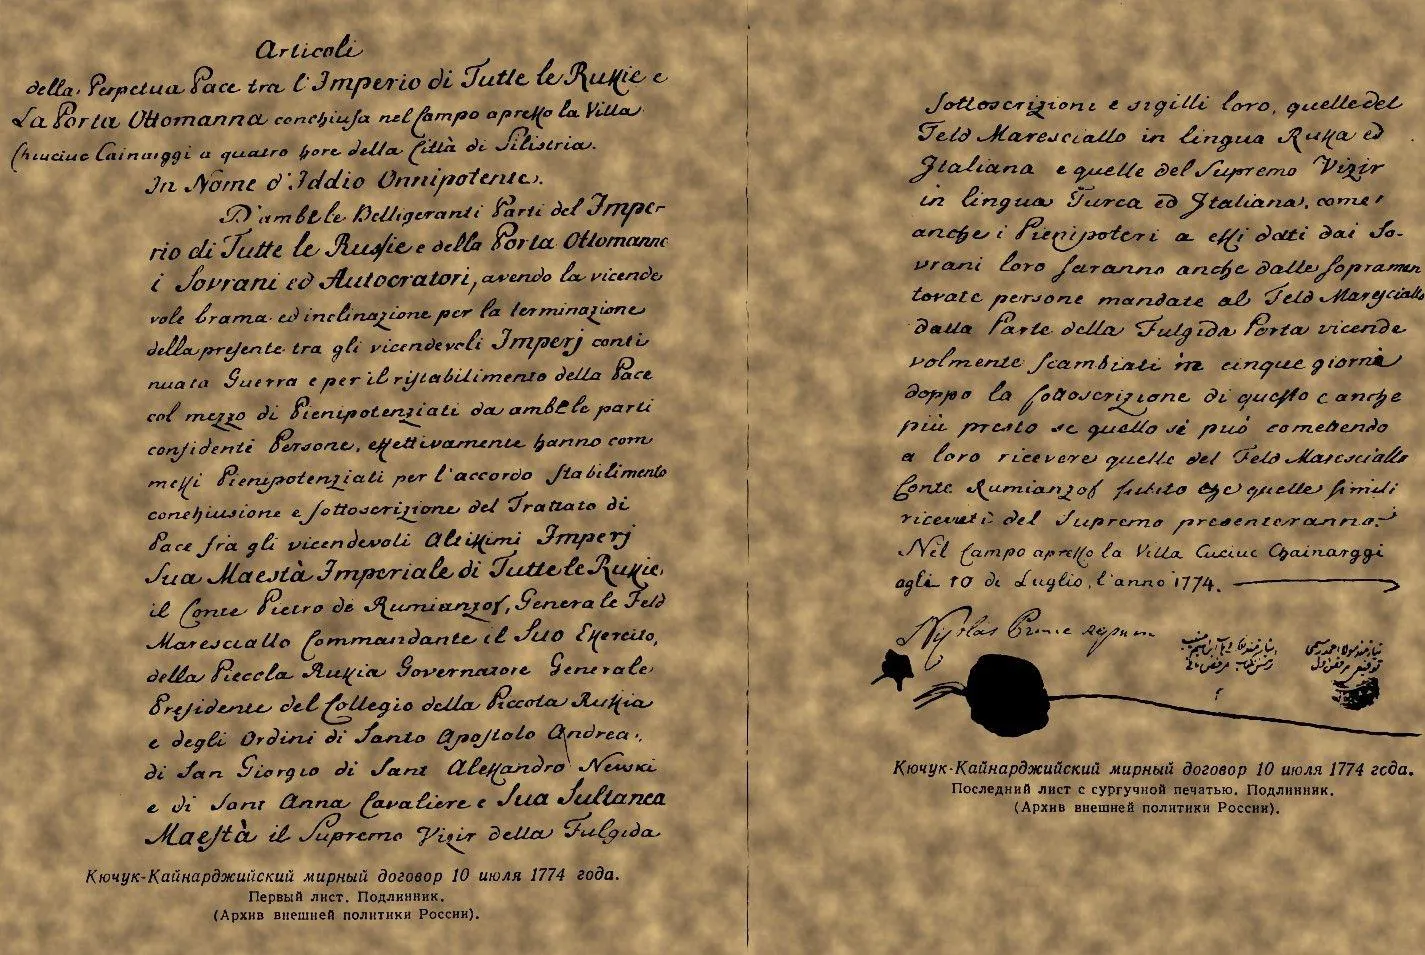 Articoli
della Perpetua Pace tra l'Imperio di Tutte le Russie e
La Porta Ottomanna conchiusa nel Campo apresso la Villa
Chiuciuc Cainarggi a quatro hore della Città di Silistria.
In Nome d'Iddio Onnipotente.
D'ambe le Belligeranti Parti del Impe-
rio di Tutte le Russie e della Porta Ottomanna
i Sovrani ed Autocratori, avendo la vicende
vole brama ed inclinazione per la terminazione
della presente tra gli vicendevoli Imperj conti
nuata Guerra e per il ristabilimento della Pace
col mezzo di Pienipotenziati da ambe le parti
confidenti Persone, effettivamente hanno com
messi Pienipotenziati per l'accordo stabilimento
conchiusione e sottoscrizione del Trattato di
Pace fra gli vicendevoli Altissimi Imperj
Sua Maestà Imperiale di Tutte le Russie,
il Conte Pietro de Rumianzof, Generale Feld
Maresciallo Commandante il Suo Esercito,
della Piccola Russia Governatore Generale
Presidente del Collegio della Piccola Russia
e degli Ordini di Santo Apostolo Andrea,
di San Giorgio di Sant Alessandro Newski
e di Sant Anna Cavaliere e Sua Sultanea
Maestà il Supremo Vizir della Fulgida
Кючук-Кайнарджийский мирный договор 10 июля 1774 года.
Первый лист. Подлинник.
(Архив внешней политики России).
sottoscrizioni e sigilli loro, quelle del
Feld Maresciallo in lingua Russa ed
Italiana e quelle del Supremo Vizir
in lingua Turca ed Italiana, come
anche i Pienipoteri a essi dati dai So-
vrani loro saranno anche dalle sopramen
tovate persone mandate al Feld Maresciallo
dalla Parte della Fulgida Porta vicende
volmente scambiati in cinque giorni
doppo la sottoscrizione di questo e anche
più presto se quello si può comettendo
a loro ricevere quelle del Feld Maresciallo
Conte Rumianzof subito che quelle simili
ricevuti del Supremo presenteranno.
Nel Campo apresso la Villa Cuciuc Chainarggi
agli 10 di Luglio, l'anno 1774.
Кючук-Кайнарджийский мирный договор 10 июля 1774 года.
Последний лист с сургучной печатью. Подлинник.
(Архив внешней политики России).